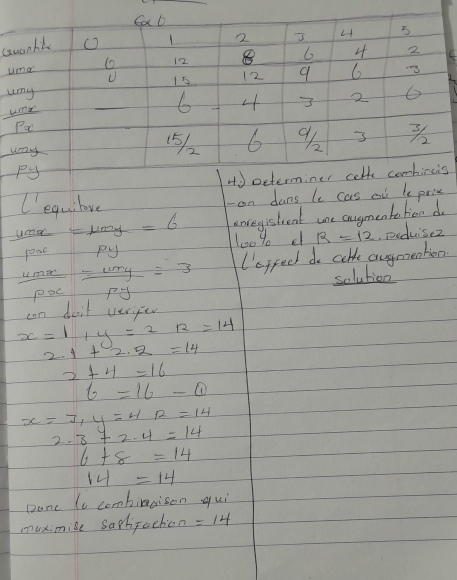 Exo
Quantité 0 1 2 3 4 5
umx 0 12 8 6 4 2
umy 0 15 12 9 6 3
umx/Px — 6 4 3 2 6
umy/Py 15/2 6 9/2 3 3/2
L'equilibre
umx/px = umy/py = 6
umx/px = umy/py = 3
on doit verifier
x = 1, y = 2 R = 14
2.1 + 2.2 = 14
2 + 4 = 16
6 = 16 - ①
x = 3, y = 4 R = 14
2.3 + 2.4 = 14
6 + 8 = 14
14 = 14
Donc la combinaison qui
maximise satisfaction = 14
4) Determiner cette combinais
-on dans le cas où le prix
enregistrent une augmentation de
100% et R = 12. Deduisez
l'effect de cette augmentation.
solution